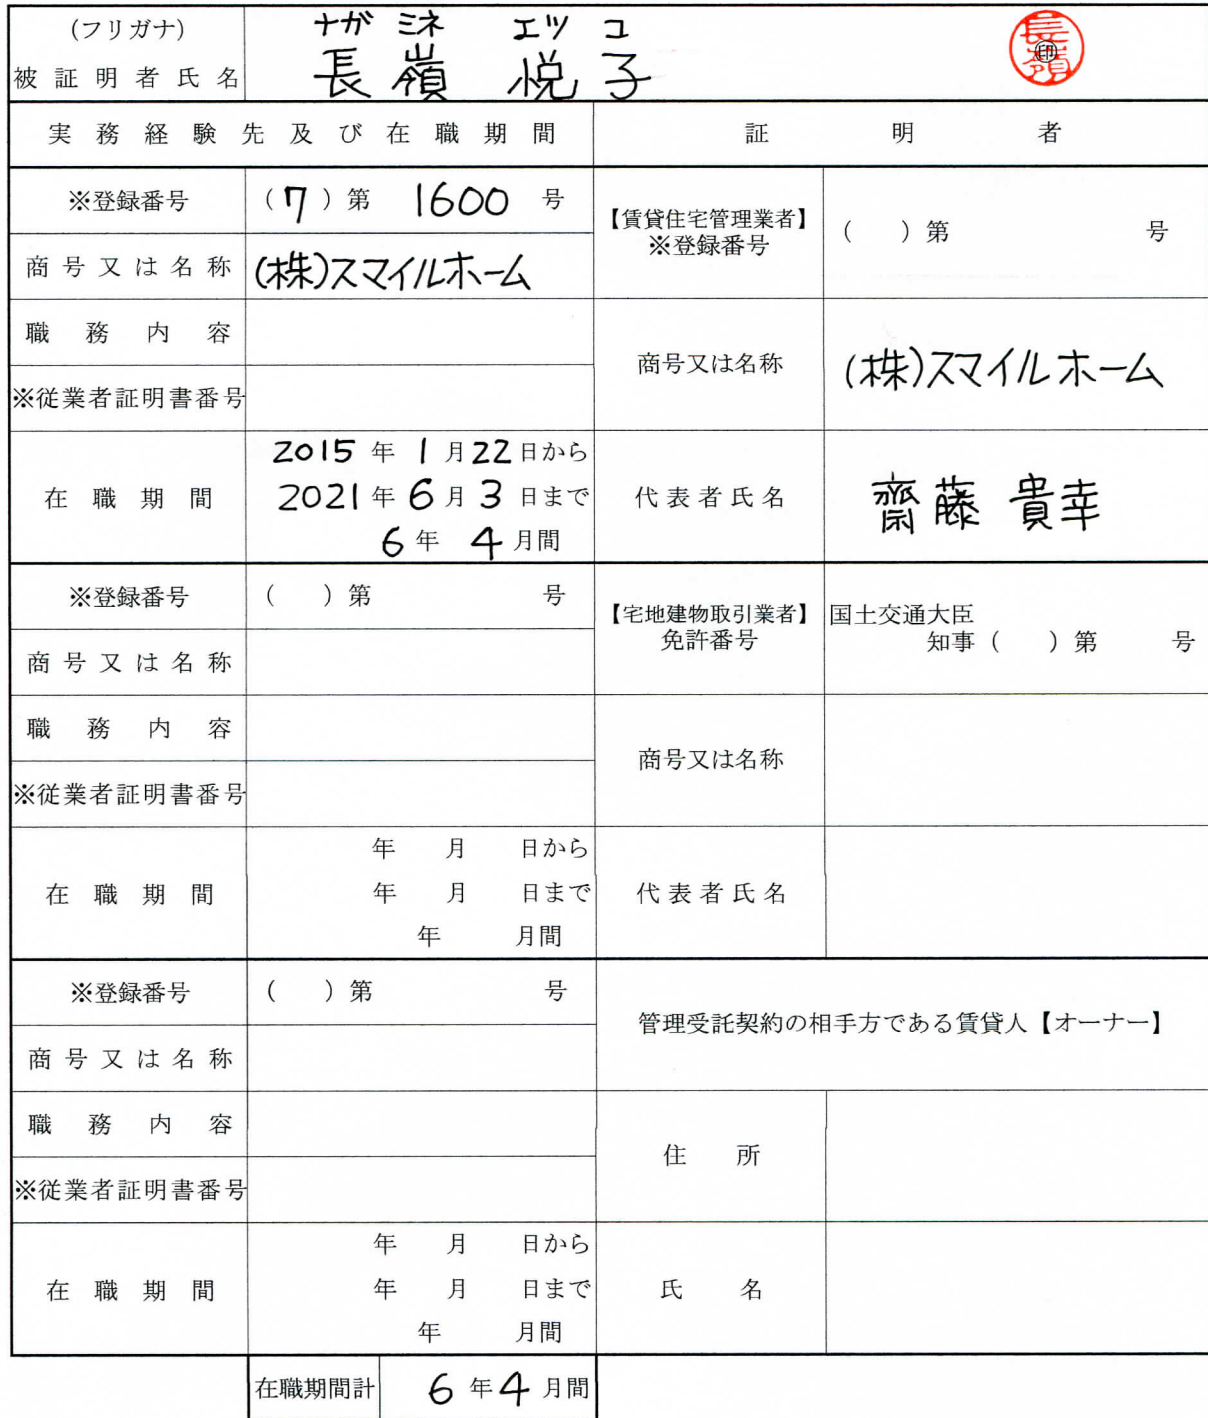 (フリガナ) ナガ ミネ エツ コ
被証明者氏名 長嶺 悦子 長嶺 印
実務経験先及び在職期間 証明者
※登録番号 (7)第 1600 号
【賃貸住宅管理業者】
※登録番号 ( )第 号
商号又は名称 (株)スマイルホーム
職務内容
商号又は名称 (株)スマイルホーム
※従業者証明書番号
在職期間
2015年1月22日から
2021年6月3日まで
6年 4月間
代表者氏名 齋藤 貴幸
※登録番号 ( )第 号
【宅地建物取引業者】
免許番号
国土交通大臣
知事( )第 号
商号又は名称
職務内容
商号又は名称
※従業者証明書番号
在職期間
年 月 日から
年 月 日まで
年 月間
代表者氏名
※登録番号 ( )第 号
管理受託契約の相手方である賃貸人【オーナー】
商号又は名称
職務内容
住所
※従業者証明書番号
在職期間
年 月 日から
年 月 日まで
年 月間
氏名
在職期間計 6年4月間